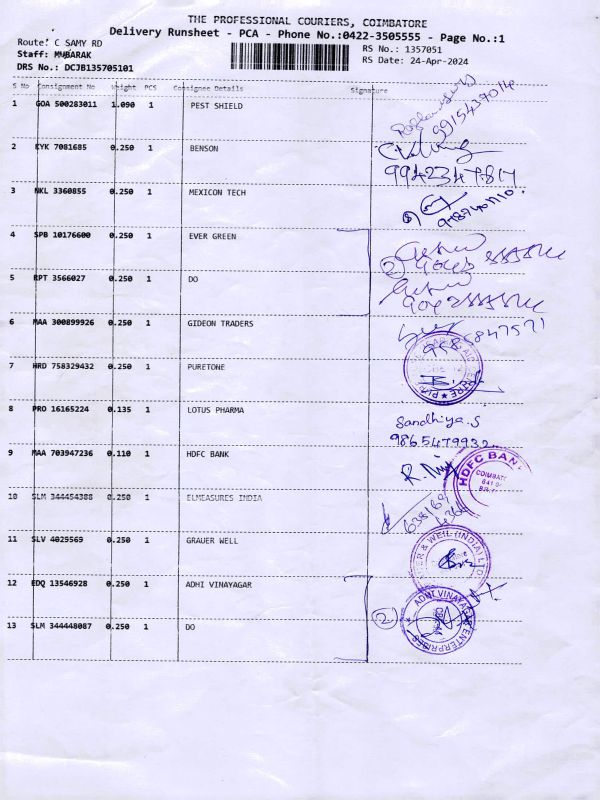 THE PROFESSIONAL COURIERS, COIMBATORE
Delivery Runsheet - PCA - Phone No.:0422-3505555 - Page No.:1
Route: C SAMY RD
RS No.: 1357051
Staff: MUBARAK
RS Date: 24-Apr-2024
DRS No.: DCJB135705101
S No Consignment No Weight PCS Consignee Details Signature
1 GOA 500283011 1.090 1 PEST SHIELD
9915439014
2 KYK 7081685 0.250 1 BENSON
9942347817
3 NKL 3360855 0.250 1 MEXICON TECH
4 SPB 10176600 0.250 1 EVER GREEN
2
5 RPT 3566027 0.250 1 DO
6 MAA 300899926 0.250 1 GIDEON TRADERS
7 HRD 758329432 0.250 1 PURETONE
8 PRO 16165224 0.135 1 LOTUS PHARMA
Sandhiya.S
9865479932
9 MAA 703947236 0.110 1 HDFC BANK
HDFC BANK
COIMBATO
641 0
10 SLM 344454388 0.250 1 ELMEASURES INDIA
11 SLV 4029569 0.250 1 GRAUER WELL
& WEIL (INDIA) L
12 EDQ 13546928 0.250 1 ADHI VINAYAGAR
2
ADHI VINAYAGA ENTERPRISES
13 SLM 344448087 0.250 1 DO